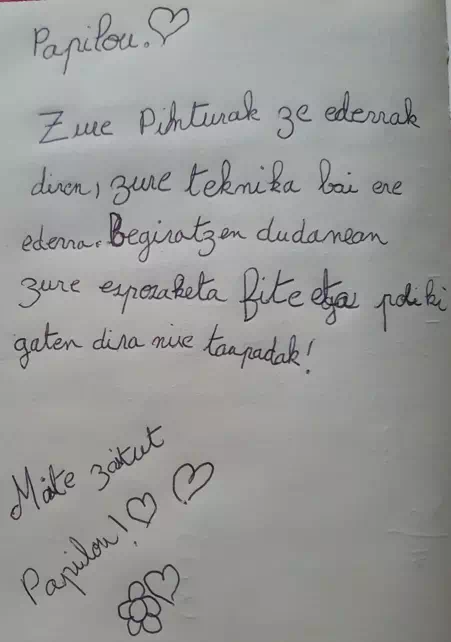 Papilou.♡
Zure Pinturak ze ederrak
diren, zure teknika bai ere
ederra. Begiratzen dudanean
zure esposaketa fite eta poliki
gaten dira nire taupadak!
Maite zaitut
Papilou!♡ ♡